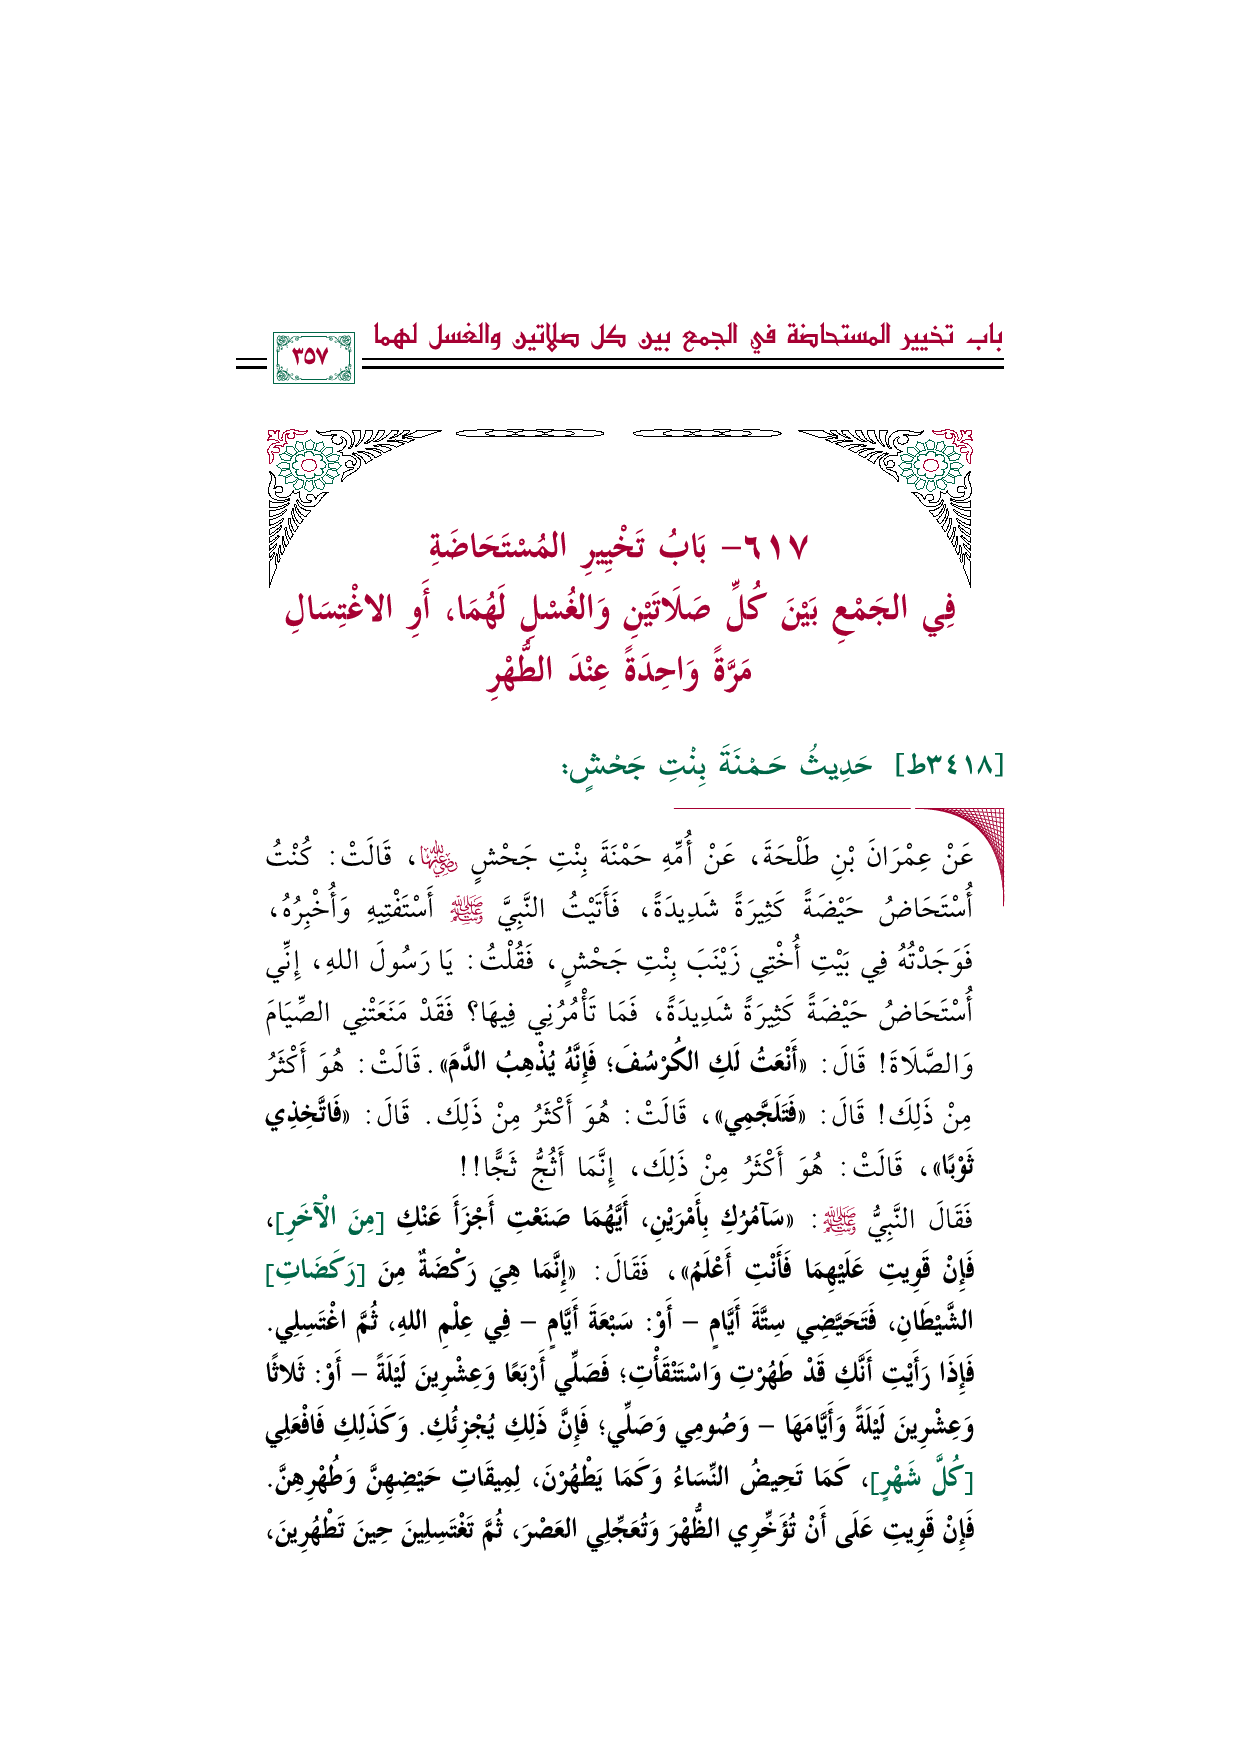 باب تخيير المستحاضة في الجمع بين كل صلاتين والغسل لهما
٣٥٧
٦١٧- بَابُ تَخْيِيرِ المُسْتَحَاضَةِ
فِي الجَمْعِ بَيْنَ كُلِّ صَلَاتَيْنِ وَالغُسْلِ لَهُمَا، أَوِ الاغْتِسَالِ
مَرَّةً وَاحِدَةً عِنْدَ الطُّهْرِ
[٣٤١٨ط] حَدِيثُ حَمْنَةَ بِنْتِ جَحْشٍ:
عَنْ عِمْرَانَ بْنِ طَلْحَةَ، عَنْ أُمِّهِ حَمْنَةَ بِنْتِ جَحْشٍ رضي الله عنها، قَالَتْ: كُنْتُ
أُسْتَحَاضُ حَيْضَةً كَثِيرَةً شَدِيدَةً، فَأَتَيْتُ النَّبِيَّ ﷺ أَسْتَفْتِيهِ وَأُخْبِرُهُ،
فَوَجَدْتُهُ فِي بَيْتِ أُخْتِي زَيْنَبَ بِنْتِ جَحْشٍ، فَقُلْتُ: يَا رَسُولَ اللهِ، إِنِّي
أُسْتَحَاضُ حَيْضَةً كَثِيرَةً شَدِيدَةً، فَمَا تَأْمُرُنِي فِيهَا؟ فَقَدْ مَنَعَتْنِي الصِّيَامَ
وَالصَّلَاةَ! قَالَ: «أَنْعَتُ لَكِ الكُرْسُفَ؛ فَإِنَّهُ يُذْهِبُ الدَّمَ». قَالَتْ: هُوَ أَكْثَرُ
مِنْ ذَلِكَ! قَالَ: «فَتَلَجَّمِي»، قَالَتْ: هُوَ أَكْثَرُ مِنْ ذَلِكَ. قَالَ: «فَاتَّخِذِي
ثَوْبًا»، قَالَتْ: هُوَ أَكْثَرُ مِنْ ذَلِكَ، إِنَّمَا أَثُجُّ ثَجًّا!!
فَقَالَ النَّبِيُّ ﷺ: «سَآمُرُكِ بِأَمْرَيْنِ، أَيَّهُمَا صَنَعْتِ أَجْزَأَ عَنْكِ [مِنَ الْآخَرِ]،
فَإِنْ قَوِيتِ عَلَيْهِمَا فَأَنْتِ أَعْلَمُ»، فَقَالَ: «إِنَّمَا هِيَ رَكْضَةٌ مِنَ [رَكَضَاتِ]
الشَّيْطَانِ، فَتَحَيَّضِي سِتَّةَ أَيَّامٍ – أَوْ: سَبْعَةَ أَيَّامٍ – فِي عِلْمِ اللهِ، ثُمَّ اغْتَسِلِي.
فَإِذَا رَأَيْتِ أَنَّكِ قَدْ طَهُرْتِ وَاسْتَنْقَأْتِ؛ فَصَلِّي أَرْبَعًا وَعِشْرِينَ لَيْلَةً – أَوْ: ثَلاثًا
وَعِشْرِينَ لَيْلَةً وَأَيَّامَهَا – وَصُومِي وَصَلِّي؛ فَإِنَّ ذَلِكِ يُجْزِئُكِ. وَكَذَلِكِ فَافْعَلِي
[كُلَّ شَهْرٍ]، كَمَا تَحِيضُ النِّسَاءُ وَكَمَا يَطْهُرْنَ، لِمِيقَاتِ حَيْضِهِنَّ وَطُهْرِهِنَّ.
فَإِنْ قَوِيتِ عَلَى أَنْ تُؤَخِّرِي الظُّهْرَ وَتُعَجِّلِي العَصْرَ، ثُمَّ تَغْتَسِلِينَ حِينَ تَطْهُرِينَ،